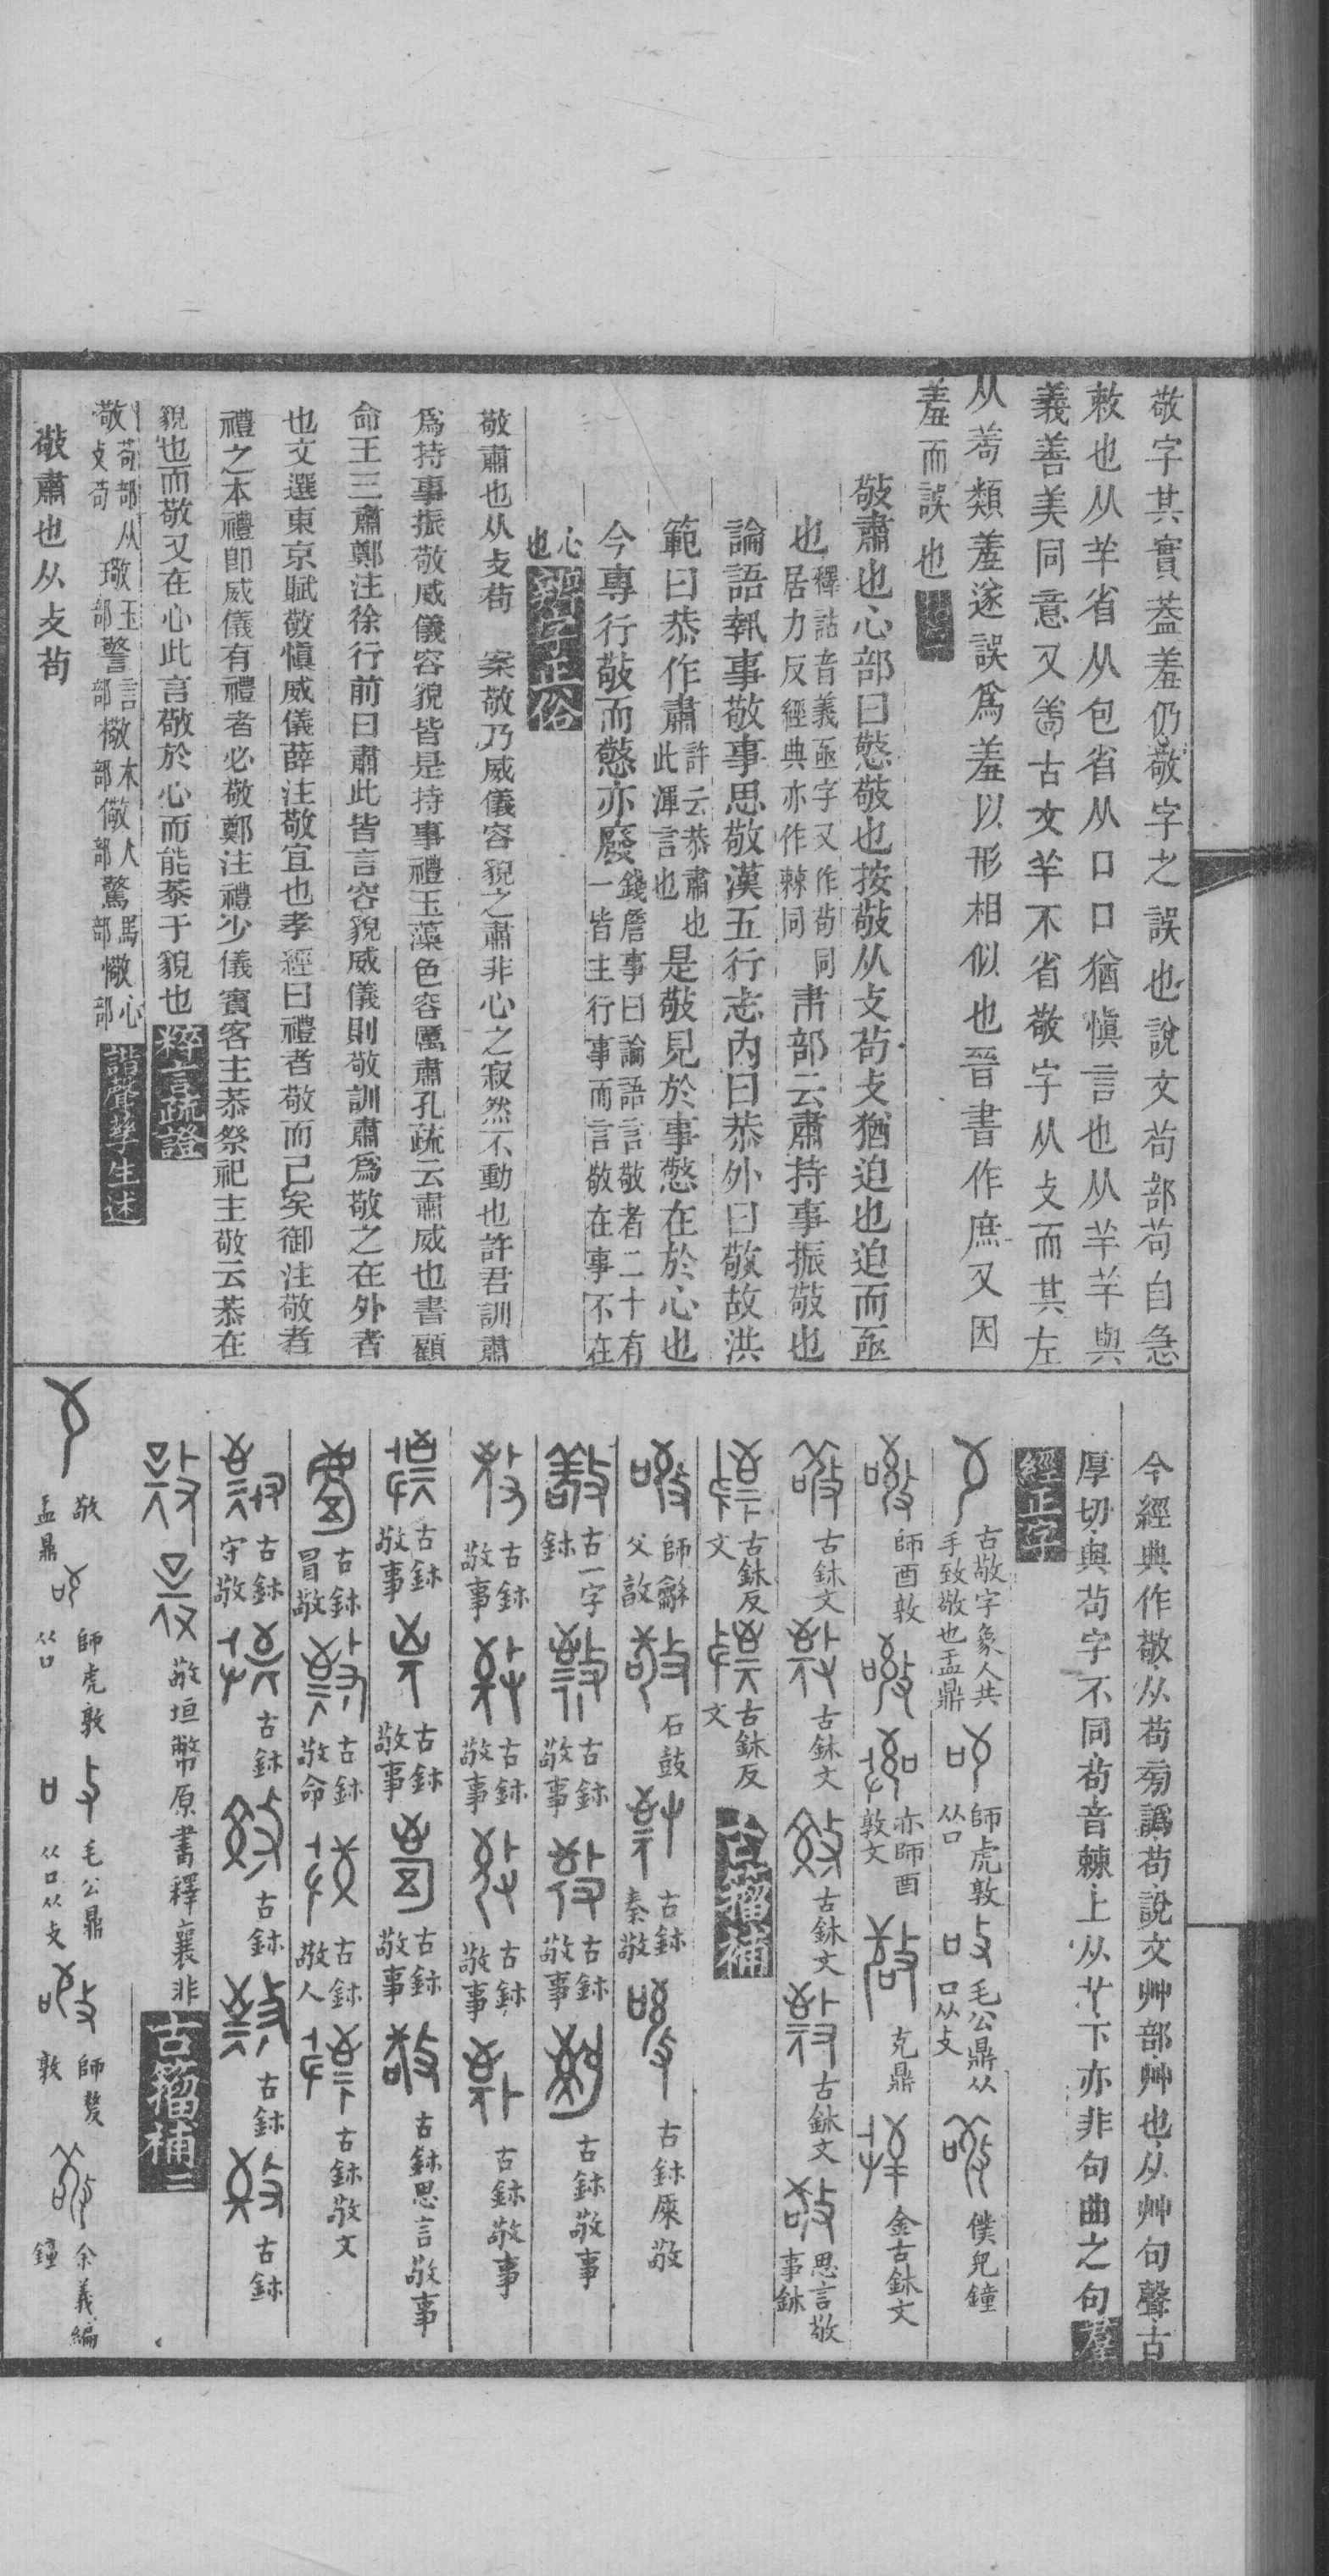 敬字其實葢羞仍敬字之誤也說文茍部茍自急
敕也从羊省从包省从口口猶愼言也从羊羊與
義善美同意又古文羊不省敬字从攴而其左
从茍類羞遂誤爲羞以形相似也晉書作庶又因
羞而誤也
敬肅也心部曰憼敬也按敬从攴茍攴猶迫也迫而亟
也釋詁音義亟字又作茍同居力反經典亦作棘同肃部云肅持事振敬也
論語執事敬事思敬漢五行志內曰恭外曰敬故洪
範曰恭作肅許云恭肅也此渾言也是敬見於事憼在於心也
今專行敬而憼亦廢錢詹事曰論語言敬者二十有一皆主行事而言敬在事不在
心也
敬肅也从攴茍　案敬乃威儀容貌之肅非心之寂然不動也許君訓肅
爲持事振敬威儀容貌皆是持事禮玉藻色容厲肅孔疏云肅威也書顧
命王三肅鄭注徐行前曰肅此皆言容貌威儀則敬訓肅爲敬之在外者
也文選東京賦敬愼威儀薛注敬宜也孝經曰禮者敬而已矣御注敬者
禮之本禮卽威儀有禮者必敬鄭注禮少儀賓客主恭祭祀主敬云恭在
貌也而敬又在心此言敬於心而能恭于貌也粹言疏證
敬茍部从攴茍璥玉部警言部檠木部儆人部驚馬部憼心部諧聲孳生述
敬肅也从攴茍
今經典作敬从苟旁譌苟說文艸部艸也从艸句聲古
厚切與茍字不同茍音棘上从下亦非句曲之句羣
經正字
古敬字象人共手致敬也盂鼎　師虎敦从口　毛公鼎从口从攴　僕兒鐘
師酉敦　亦師酉敦文　克鼎　金古鉢文
古鉢文　古鉢文　古鉢文　古鉢文　思言敬事鉢
古鉢反文　古鉢反文　古籀補
師龢父敦　石鼓　古鉢秦敬　古鉢敬
古一字鉢　古鉢敬事　古鉢敬事　古鉢敬事
古鉢敬事　古鉢敬事　古鉢敬事　古鉢敬事
古鉢敬事　古鉢敬事　古鉢敬事　古鉢思言敬事
古鉢冒敬　古鉢敬命　古鉢敬人　古鉢敬文
古鉢守敬　古鉢　古鉢　古鉢　古鉢
敬垣幣原書釋襄非古籀補二
敬盂鼎　師虎敦从口　毛公鼎从口从攴　師敦　余義編鐘